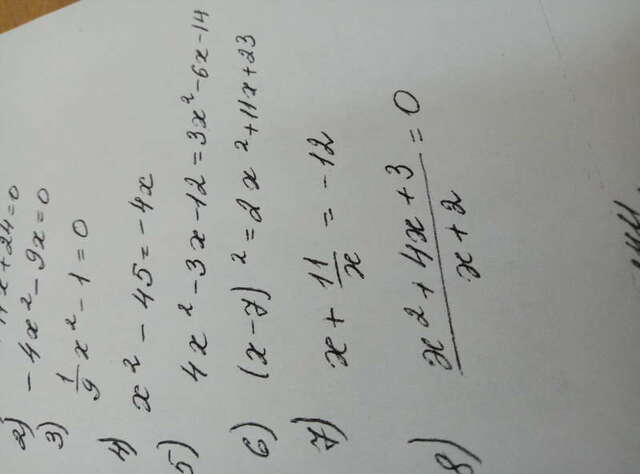 x+24=0
2) -4x²-9x=0
3) 1/9 x²-1=0
4) x²-45=-4x
5) 4x²-3x-12=3x²-6x-14
6) (x-7)²=2x²+11x+23
7) x+11/x=-12
8) x²+4x+3/x+2=0